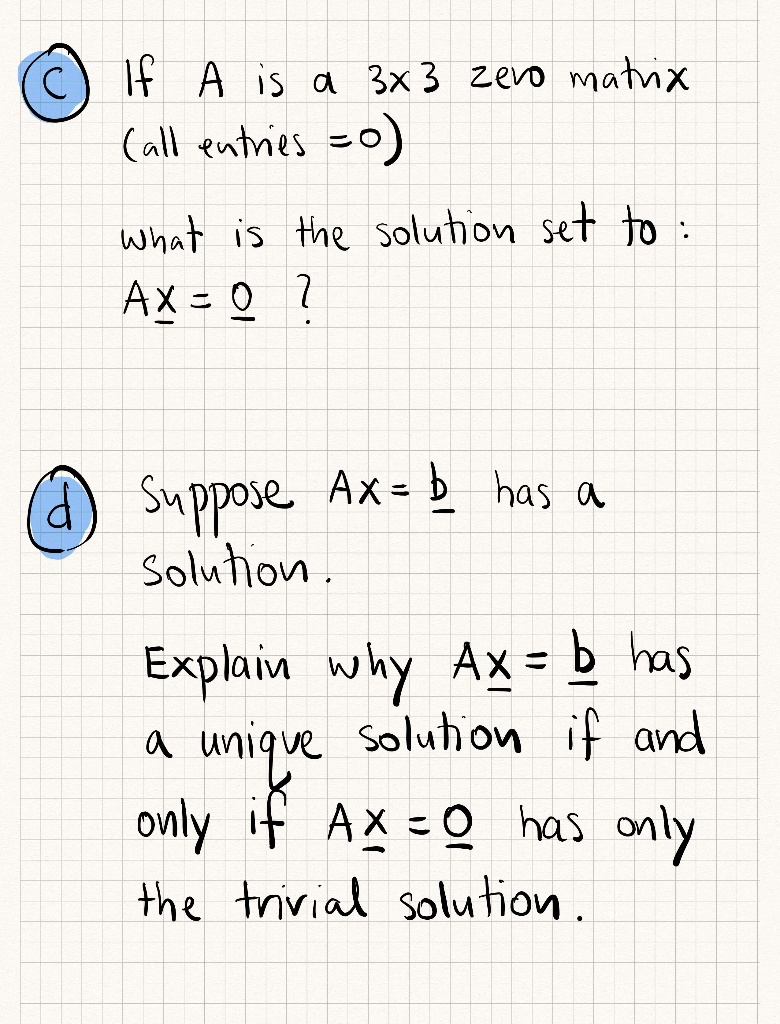 c If A is a 3x3 zero matrix
(all entries = 0)
what is the solution set to :
Ax = 0 ?
d Suppose Ax = b has a
solution.
Explain why Ax = b has
a unique solution if and
only if Ax = 0 has only
the trivial solution.